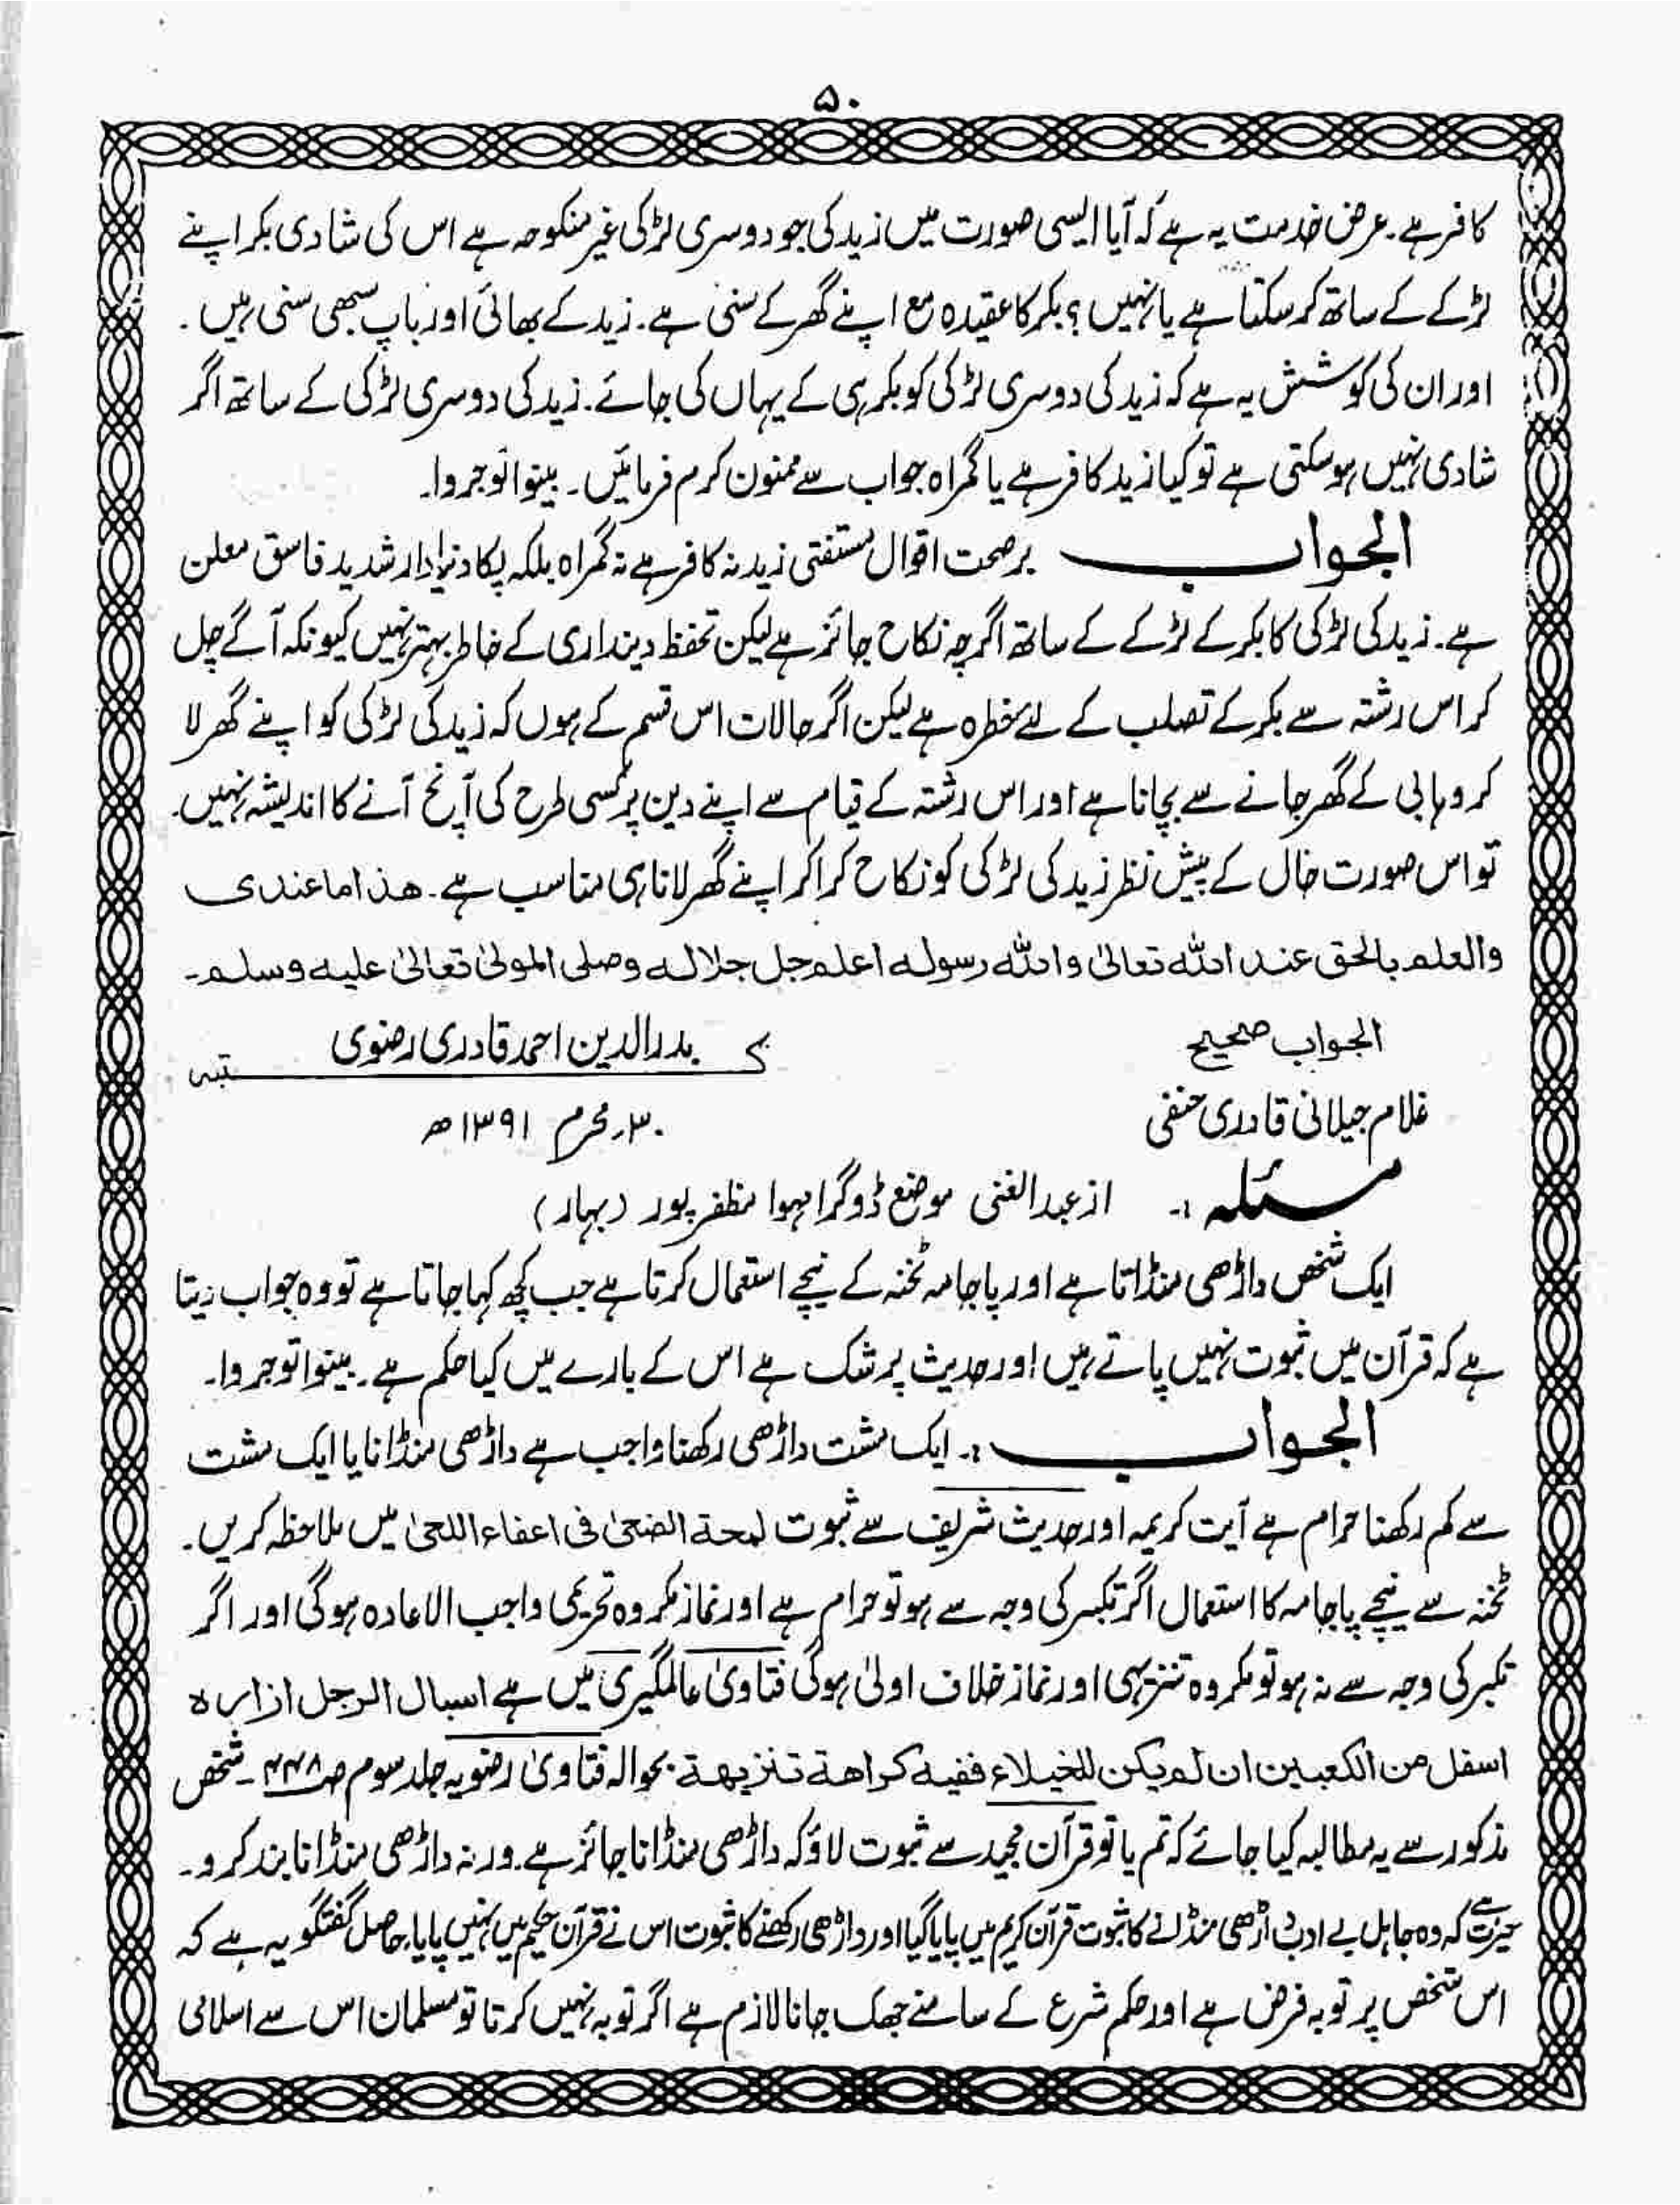 ۵۰
کافر ہے۔ عرض خدمت یہ ہے کہ آیا ایسی صورت میں زید کی جو دوسری لڑکی غیر منکوحہ ہے اس کی شادی بکر اپنے
لڑکے کے ساتھ کر سکتا ہے یا نہیں؟ بکر کا عقیدہ مع اپنے گھر کے سنی ہے۔ زید کے بھائی اور باپ سبھی سنی ہیں۔
اور ان کی کوشش یہ ہے کہ زید کی دوسری لڑکی کو بکر ہی کے یہاں کی جائے۔ زید کی دوسری لڑکی کے ساتھ اگر
شادی نہیں ہو سکتی ہے تو کیا زید کافر ہے یا گمراہ جواب سے ممنون کرم فرمائیں۔ بینوا توجروا۔
الجواب برصحت اقوال مستفتی زید نہ کافر ہے نہ گمراہ بلکہ پکا دنیادار شدید فاسق معلن
ہے۔ زید کی لڑکی کا بکر کے لڑکے کے ساتھ اگرچہ نکاح جائز ہے لیکن تحفظ دینداری کے خاطر بہتر نہیں کیونکہ آگے چل
کر اس رشتہ سے بکر کے تصلب کے لئے خطرہ ہے لیکن اگر حالات اس قسم کے ہوں کہ زید کی لڑکی کو اپنے گھر لا
کر وہابی کے گھر جانے سے بچانا ہے اور اس رشتہ کے قیام سے اپنے دین پر کسی طرح کی آنچ آنے کا اندیشہ نہیں۔
تو اس صورت حال کے پیش نظر زید کی لڑکی کو نکاح کرا کر اپنے گھر لانا ہی مناسب ہے۔ ھذا ما عندی
والعلم بالحق عند اللہ تعالیٰ واللہ رسولہ اعلم جل جلالہ وصلی المولیٰ تعالیٰ علیہ وسلم۔
الجواب صحیح
کتبہ بدرالدین احمد قادری رضوی
غلام جیلانی قادری حنفی
۳۰؍ محرم ۱۳۹۱ھ
مسئلہ:۔ از عبدالغنی موضع ڈوگراہوا مظفرپور (بہار)
ایک شخص داڑھی منڈاتا ہے اور پاجامہ ٹخنہ کے نیچے استعمال کرتا ہے جب کچھ کہا جاتا ہے تو وہ جواب دیتا
ہے کہ قرآن میں ثبوت نہیں پاتے ہیں اور حدیث پر شک ہے اس کے بارے میں کیا حکم ہے۔ بینوا توجروا۔
الجواب:۔ ایک مشت داڑھی رکھنا واجب ہے داڑھی منڈانا یا ایک مشت
سے کم رکھنا حرام ہے آیت کریمہ اور حدیث شریف سے ثبوت لمحۃ الضحیٰ فی اعفاء اللحیٰ میں ملاحظہ کریں۔
ٹخنہ سے نیچے پاجامہ کا استعمال اگر تکبر کی وجہ سے ہو تو حرام ہے اور نماز مکروہ تحریمی واجب الاعادہ ہوگی اور اگر
تکبر کی وجہ سے نہ ہو تو مکروہ تنزیہی اور نماز خلاف اولیٰ ہوگی فتاویٰ عالمگیری میں ہے اسبال الرجل ازارہ
اسفل من الکعبین ان لم یکن للخیلاء ففیہ کراھۃ تنزیھۃ۔ بحوالہ فتاویٰ رضویہ جلد سوم ص۴۴۸۔ شخص
مذکور سے یہ مطالبہ کیا جائے کہ تم یا تو قرآن مجید سے ثبوت لاؤ کہ داڑھی منڈانا جائز ہے۔ ورنہ داڑھی منڈانا بند کرو۔
حیرت ہے کہ وہ جاہل بے ادب داڑھی منڈانے کا ثبوت قرآن کریم میں پا گیا اور داڑھی رکھنے کا ثبوت اس نے قرآن حکیم میں نہیں پایا۔ حاصل گفتگو یہ ہے کہ
اس شخص پر توبہ فرض ہے اور حکم شرع کے سامنے جھک جانا لازم ہے اگر توبہ نہیں کرتا تو مسلمان اس سے اسلامی